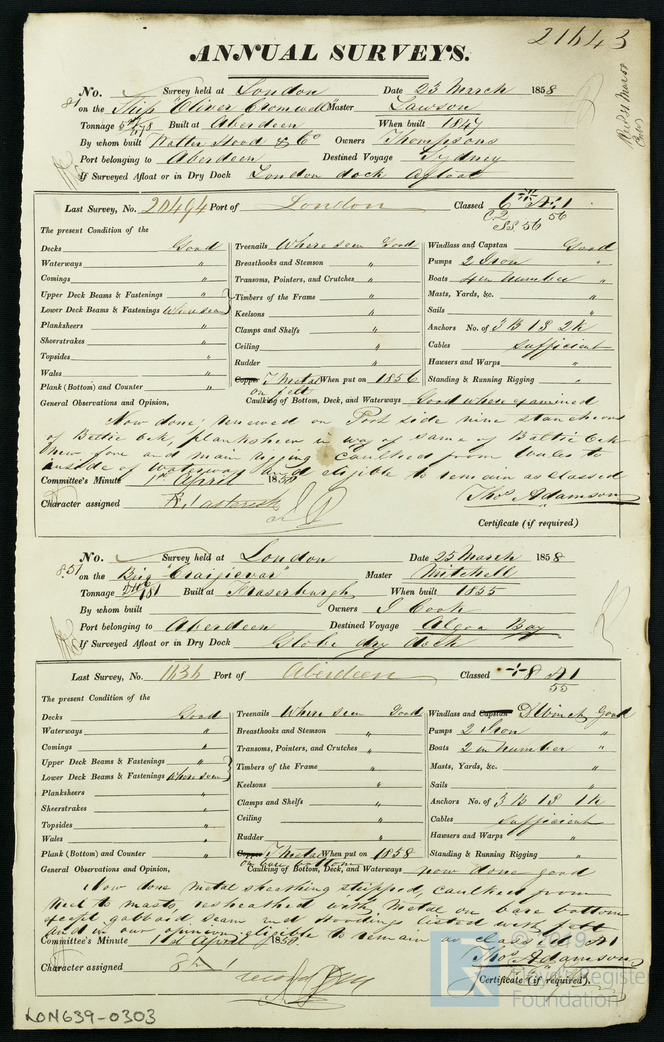 21643
ANNUAL SURVEYS.
No. Survey held at London Date 23 March 1858
on the Ship "Oliver Cromwell" Master Lawson
Tonnage Built at Aberdeen When built 1847
By whom built Walter Hood & Co Owners Thompsons
Port belonging to Aberdeen Destined Voyage Sydney
If Surveyed Afloat or in Dry Dock London dock afloat
Last Survey, No. 20494 Port of London Classed 6 A1
SS 56 56
The present Condition of the
Decks Good
Waterways "
Comings "
Upper Deck Beams & Fastenings "
Lower Deck Beams & Fastenings Where seen
Planksheers "
Sheerstrakes "
Topsides "
Wales "
Plank (Bottom) and Counter "
Treenails Where seen Good
Breasthooks and Stemson "
Transoms, Pointers, and Crutches "
Timbers of the Frame "
Keelsons "
Clamps and Shelfs "
Ceiling "
Rudder "
Copper Y Metal When put on 1856
on felt
Windlass and Capstan Good
Pumps 2 Iron "
Boats 4 in number "
Masts, Yards, &c. "
Sails "
Anchors No. of 3 B 1 S 2 K
Cables sufficient
Hawsers and Warps "
Standing & Running Rigging "
General Observations and Opinion, Caulking of Bottom, Deck, and Waterways Good where examined
Now done, renewed on Port side nine stancheons
of Baltic Oak, planksheer in way of same of Baltic Oak
new fore and main rigging caulked from Wales to
inside of waterway and eligible to remain as classed
Committee's Minute 1st April 1858
Character assigned
Thos Adamson
Certificate (if required)
No. Survey held at London Date 25 March 1858
851 on the Brig "Craigievar" Master Mitchell
Tonnage 181 Built at Fraserburgh When built 1855
By whom built Owners J Cook
Port belonging to Aberdeen Destined Voyage Algoa Bay
If Surveyed Afloat or in Dry Dock Globe dry dock
Last Survey, No. 1136 Port of Aberdeen Classed 8 A1
55
The present Condition of the
Decks Good
Waterways "
Comings "
Upper Deck Beams & Fastenings "
Lower Deck Beams & Fastenings Where seen
Planksheers "
Sheerstrakes "
Topsides "
Wales "
Plank (Bottom) and Counter "
Treenails Where seen Good
Breasthooks and Stemson "
Transoms, Pointers, and Crutches "
Timbers of the Frame "
Keelsons "
Clamps and Shelfs "
Ceiling "
Rudder "
Copper Y Metal When put on 1858
on bare bottom
Windlass and Capstan D Winch Good
Pumps 2 Iron "
Boats 2 in number "
Masts, Yards, &c. "
Sails "
Anchors No. of 3 B 1 S 1 K
Cables sufficient
Hawsers and Warps "
Standing & Running Rigging "
General Observations and Opinion, Caulking of Bottom, Deck, and Waterways now done good
Now done metal sheathing stripped, caulked from
keel to resheathed with metal on bare bottom
except garboard seam and listed with felt
and in our opinion eligible to remain as classed A1
Committee's Minute 1st April 1858
Character assigned 8
Thos Adamson
Certificate (if required).
© 2019
Lloyd's Register
Foundation
LON639-0303